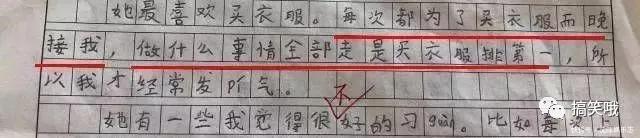 她最喜欢买衣服。每次都为了买衣服而晚
接我，做什么事情全部走是买衣服排第一，所
以我才经常发pí气。
不
她有一些我觉得很好的习guàn。比如每
搞笑哦